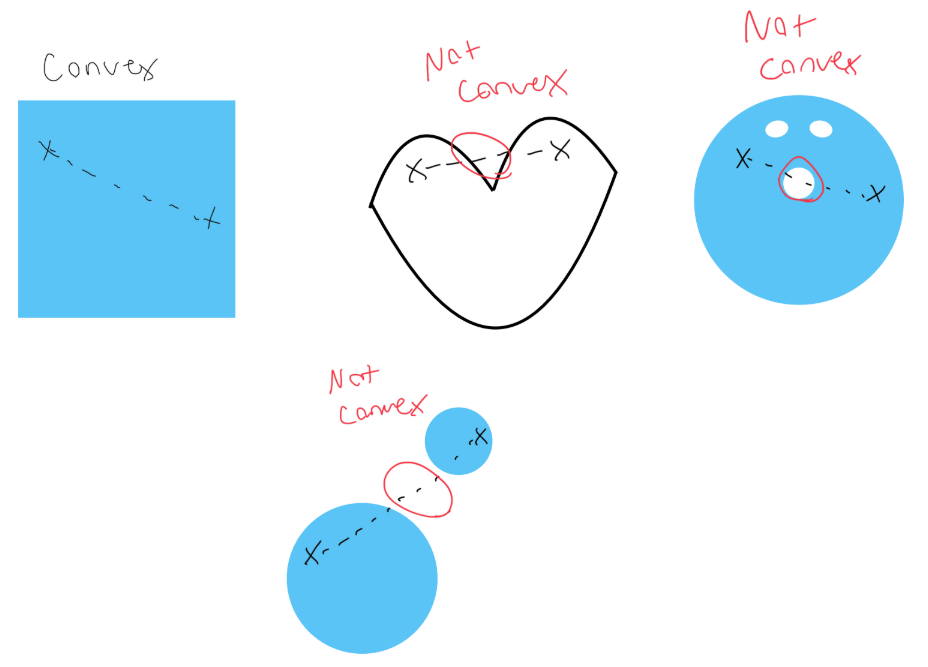 Convex
Not
convex
Not
convex
Not
convex